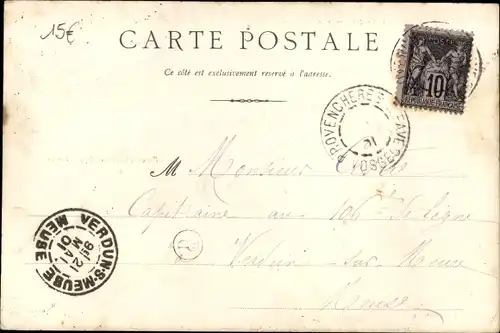 15€
CARTE POSTALE
Ce côté est exclusivement reservé à l'adresse.
10
PROVENCHERES VOSGES
31
M Monsieur
Capitaine au 106e de ligne
à Verdun-sur-Meuse
Meuse
VERDUN-S-MEUSE
21 MAI 01
MEUSE